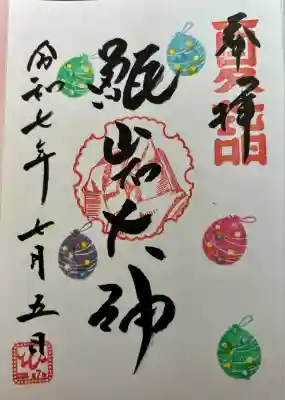 奉拝
甑岩大神
令和七年七月五日